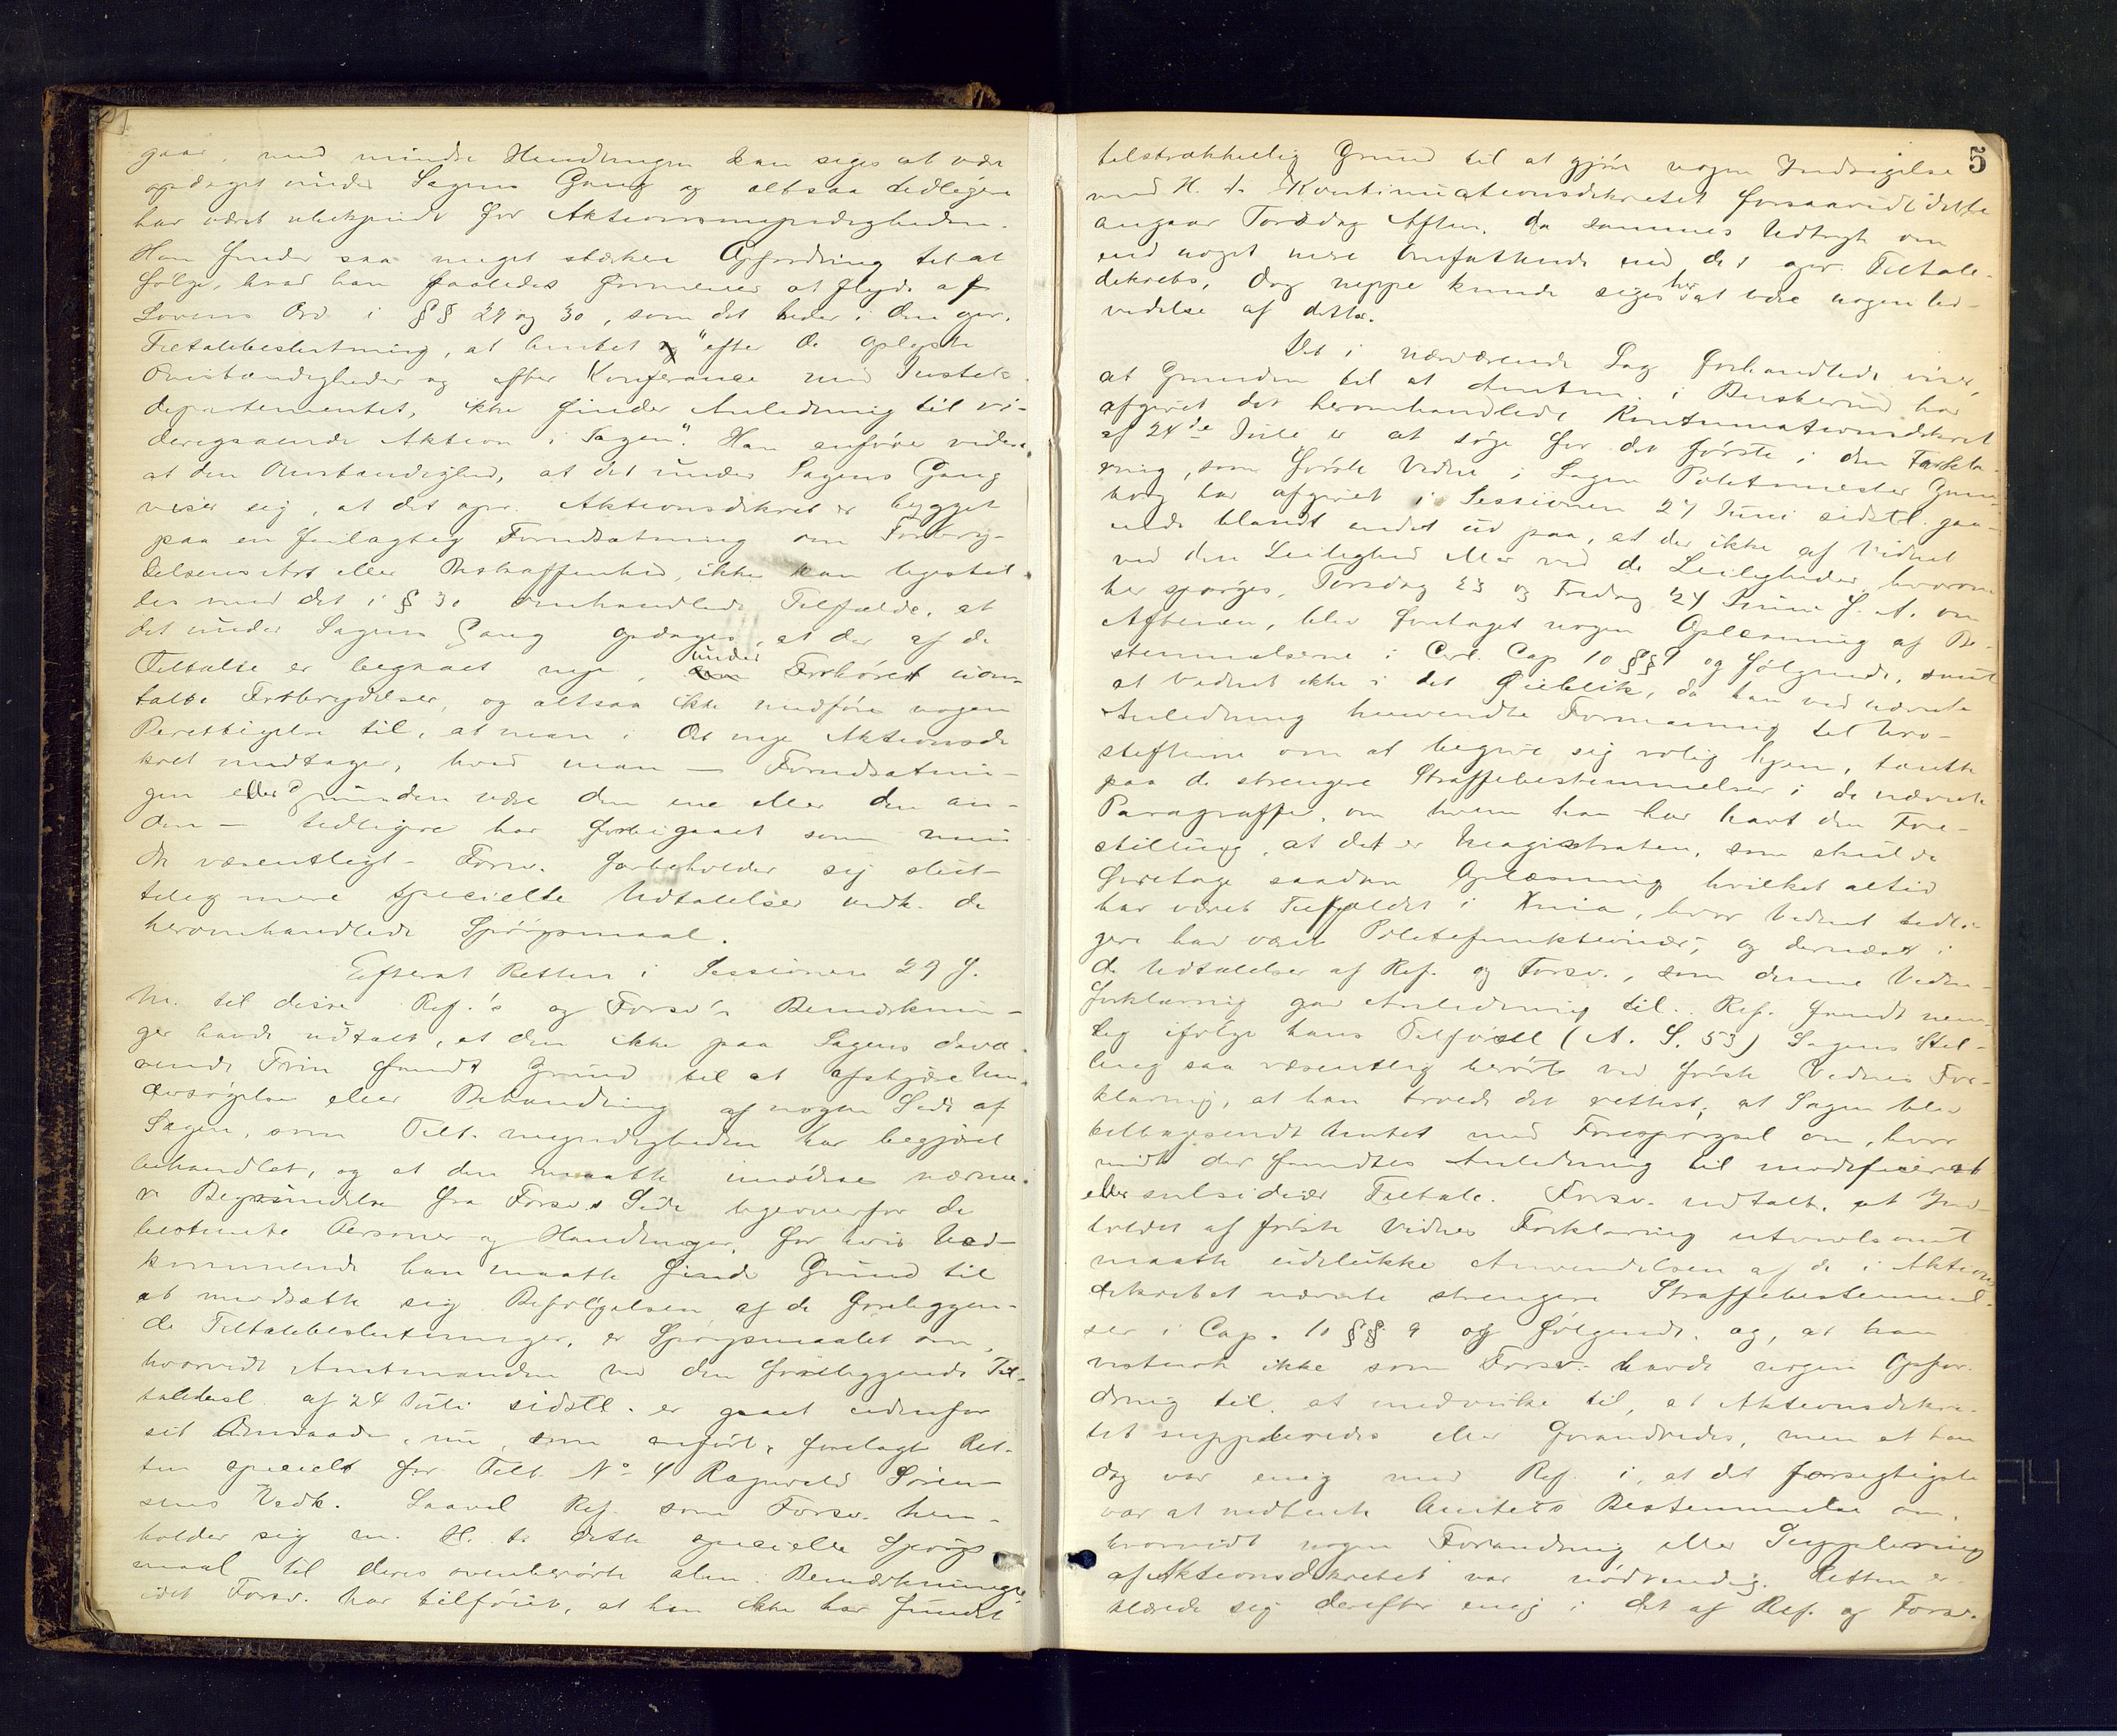 gaar, med mindre Handlingen kan siges at være
opdaget under Sagens Gang og altsaa tidligere
har været ubekjendt for Aktionsmyndigheden.
Han finder saa meget stærkere Opfordring til at
følge, hvad han saaledes formener at flyde af
Lovens Ord i §§ 29 og 30, som det heder i den opr.
Tiltalebeslutning, at Amtet "efter de oplyste
Omstændigheder og efter Konferance med Justits-
departementet, ikke finder Anledning til vi-
deregaaende Aktion i Sagen". Han anfører videre,
at den Omstændighed, at det under Sagens Gang
viser sig, at det opr. Aktionsdekret er bygget
paa en feilagtig Forudsætning om Forbry-
delsens Art eller Beskaffenhed, ikke kan ligestil-
les med det i § 30 omhandlede Tilfælde, at
det under Sagens Gang opdages, at der af de
Tiltalte er begaaet nye, under Forhøret uom-
talte Forbrydelser, og altsaa ikke medføre nogen
Berettigelse til, at man i det nye Aktionsde-
kret medtager, hvad man — Forudsætnin-
gen eller Grunden være den ene eller den an-
den — tidligere har forbigaaet som min-
dre væsentligt. Forsv. forbeholder sig slut-
telig mere specielle Udtalelser vedk. de
heromhandlede Spørgsmaal.
Efterat Retten i Sessionen 29 f.
M. til disse Ref.'s og Forsv's Bemærknin-
ger havde udtalt, at den ikke paa Sagens davæ-
rende Trin fandt Grund til at afskjære Un-
dersøgelse eller Behandling af nogen Side af
Sagen, som Tilt. myndigheden har begjæret
behandlet, og at den maatte imødese nærme-
re Begrundelse fra Forsv.s Side ligeoverfor de
bestemte Personer og Handlinger, for hvis Ved-
kommende han maatte finde Grund til
at modsætte sig Befølgelsen af de foreliggen-
de Tiltalebeslutninger, er Spørgsmaalet om,
hvorvidt Amtmanden ved den foreliggende Til-
talebesl. af 24 Juli sidstl. er gaaet udenfor
sit Omraade, nu, som anført, forelagt Ret-
ten specielt for Tilt. No 4 Ragnvald Søren-
sens Vedk. Saavel Ref. som Forsv. hen-
holder sig m. H. t. dette specielle Spørgs-
maal til deres ovenberørte alm. Bemærkninger,
idet Forsv. har tilføiet, at han ikke har fundet
5
tilstrækkelig Grund til at gjøre nogen Indsigelse
med H. t. Kontinuationsdekretet forsaavidt dette
angaar Torsdag Aften, da sammes Udtryk om
end noget mere omfattende end det opr. Tiltale-
dekrets, dog neppe kunde siges her at være nogen Ud-
videlse af dette.
Det i nærværende Sag forhandlede viser,
at Grunden til at Amtm. i Buskerud har
afgivet det heromhandlede Kontinuationsdekret
af 24de Juli er at søge for det første i den Forkla-
ring, som første Vidne i Sagen Politimester
har afgivet i Sessionen 27 Juni sidstl. gaa-
ende blandt andet ud paa, at der ikke af Vidnet
ved den Leilighed eller ved de Leiligheder, hvorom
her spørges, Torsdag 23 og Fredag 24 Juni d. A. om
Aftenen, blev foretaget nogen Oplæsning af Be-
stemmelserne i Crl. Cap 10 §§ 9 og følgende, samt
at Vidnet ikke i det Øieblik, da han ved nævnte
Anledning henvendte Formaning til Uro-
stifterne om at begive sig rolig hjem, tænkte
paa de strengere Straffebestemmelser i de nævnte
Paragraffer, om hvem han har havt den Fore-
stilling, at det er Magistraten, som skulde
foretage saadan Oplæsning hvilket altid
har været Tilfældet i Xnia, hvor Vidnet tidli-
gere har været Politifunktionær, og dernæst i
de Udtalelser af Ref. og Forsv., som denne Vidne-
forklaring gav Anledning til. Ref. fandt nem-
lig ifølge hans Tilførsel (A. S. 53) Sagens Stil-
ling saa væsentlig berørt ved første Vidnes For-
klaring, at han troede det rettest, at Sagen blev
tilbagesendt Amtet med Forespørgsel om, hvor-
vidt der fandtes Anledning til modificeret
eller subsidiær Tiltale. Forsv. udtalte, at Ind-
holdet af første Vidnes Forklaring utvivlsomt
maatte udelukke Anvendelsen af de i Aktions-
dekretet nævnte strengere Straffebestemmel-
ser i Cap. 10 §§ 9 og følgende, og, at han
vistnok ikke som Forsv. havde nogen Opfor-
dring til, at medvirke til, at Aktionsdekre-
tet suppleredes eller forandredes, men at han
dog var enig med Ref. i, at det forsigtigste
var at indhente Amtets Bestemmelse om,
hvorvidt nogen Forandring eller Supplering
af Aktionsdekretet var nødvendig. Retten er-
klærede sig derefter enig i det af Ref. og Forsv.